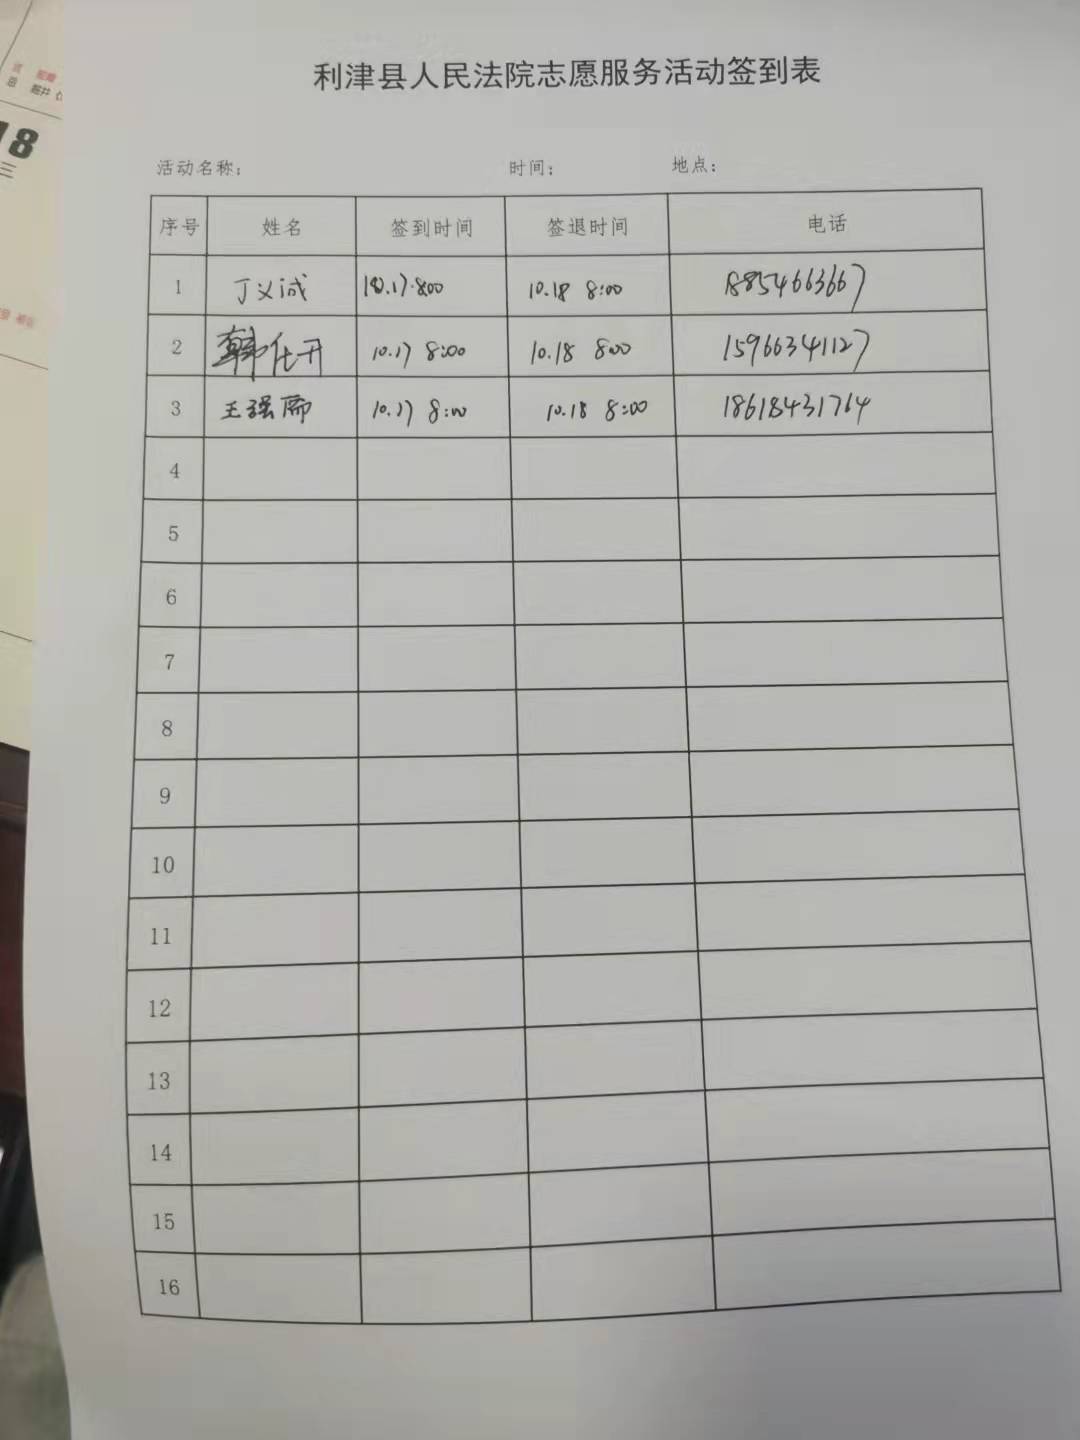 18
三
利津县人民法院志愿服务活动签到表
活动名称： 时间： 地点：
序号 姓名 签到时间 签退时间 电话
1 丁义诚 10.17.8:00 10.18 8:00 18854663667
2 韩仕开 10.17 8:00 10.18 8:00 15966341127
3 王强 10.17 8:00 10.18 8:00 18618431764
4
5
6
7
8
9
10
11
12
13
14
15
16